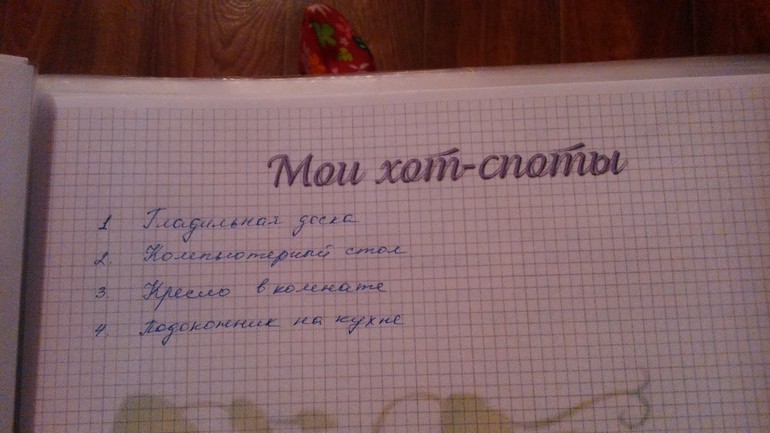 Мои хот-споты
1 Гладильная доска
2. Компьютерный стол
3. Кресло в комнате
4. Подоконник на кухне